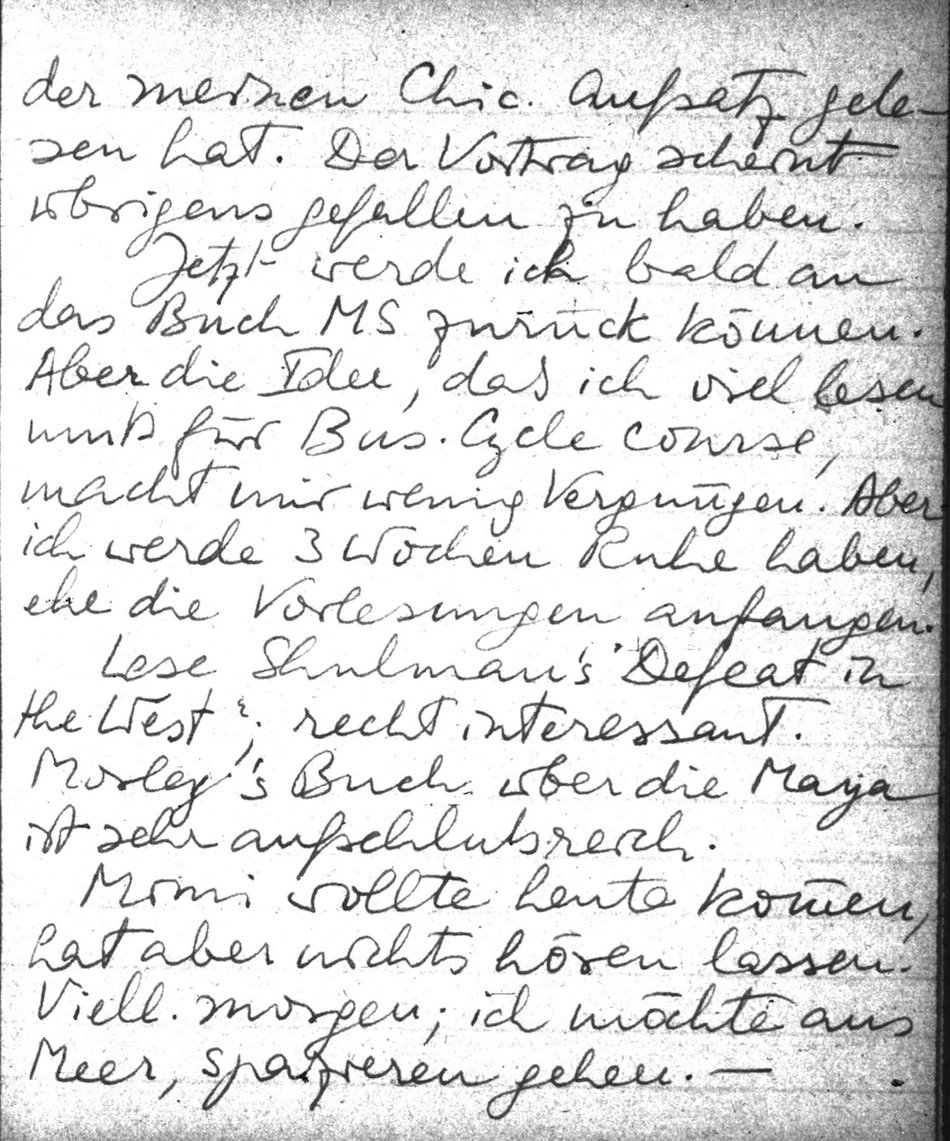 der meinen Chic. Aufsatz gele-
sen hat. Der Vortrag scheint
übrigens gefallen zu haben.
Jetzt werde ich bald an
das Buch MS zurück können.
Aber die Idee, daß ich viel lesen
muß für Bus. Cycle course,
macht mir wenig Vergnügen. Aber
ich werde 3 Wochen Ruhe haben,
ehe die Vorlesungen anfangen.
Lese Shulman's "Defeat in
the West"; recht interessant.
Morley's Buch über die Maya
ist sehr aufschlußreich.
Mimi wollte heute kom̅en,
hat aber nichts hören lassen.
Viell. morgen; ich möchte ans
Meer, spazieren gehen. —